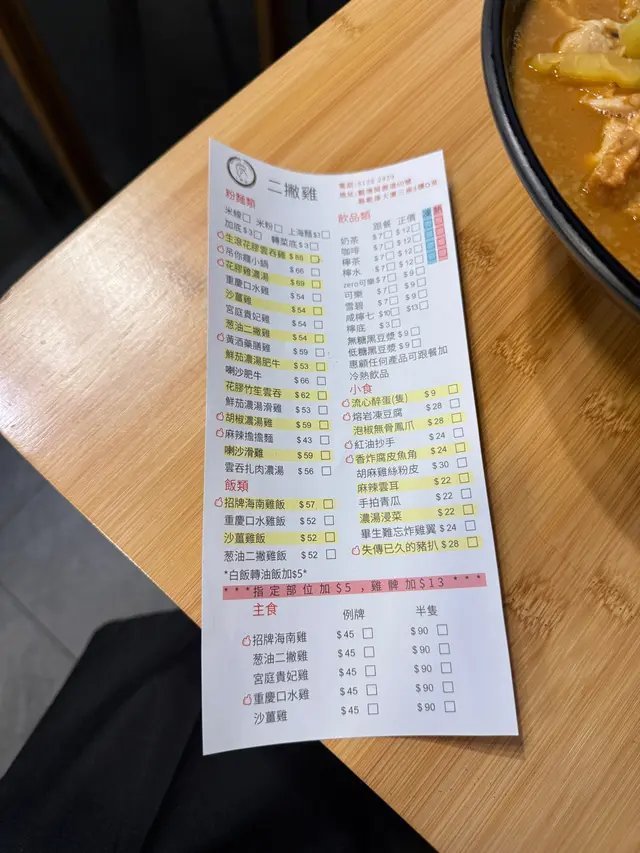 二撇雞
粉麵類
米線 米粉 上海麵$1
加底$3 轉菜底$3
生滾花膠雲吞雞 $88
吊你癮小鍋 $66
花膠雞濃湯 $69
重慶口水雞 $54
沙薑雞 $54
宮庭貴妃雞 $54
葱油二撇雞 $54
黃酒藥膳雞 $59
鮮茄濃湯肥牛 $53
喇沙肥牛 $66
花膠竹笙雲吞 $62
鮮茄濃湯滑雞 $53
胡椒濃湯雞 $59
麻辣擔擔麵 $43
喇沙滑雞 $59
雲吞扎肉濃湯 $56
飯類
招牌海南雞飯 $57
重慶口水雞飯 $52
沙薑雞飯 $52
葱油二撇雞飯 $52
*白飯轉油飯加$5*
飲品類 跟餐 正價 凍 熱
奶茶 $7 $12
咖啡 $7 $12
檸茶 $7 $12
檸水 $7 $12
zero可樂 $7 $9
可樂 $7 $9
雪碧 $7 $9
咸檸七 $10 $13
檸底 $3
無糖黑豆漿 $9
低糖黑豆漿 $9
惠顧任何產品可跟餐加
冷熱飲品
小食
流心醉蛋(隻) $9
熔岩凍豆腐 $28
泡椒無骨鳳爪 $28
紅油抄手 $24
香炸腐皮魚角 $24
胡麻雞絲粉皮 $30
麻辣雲耳 $22
手拍青瓜 $22
濃湯浸菜 $22
畢生難忘炸雞翼 $24
失傳已久的豬扒 $28
***指定部位加$5,雞髀加$13***
主食 例牌 半隻
招牌海南雞 $45 $90
葱油二撇雞 $45 $90
宮庭貴妃雞 $45 $90
重慶口水雞 $45 $90
沙薑雞 $45 $90